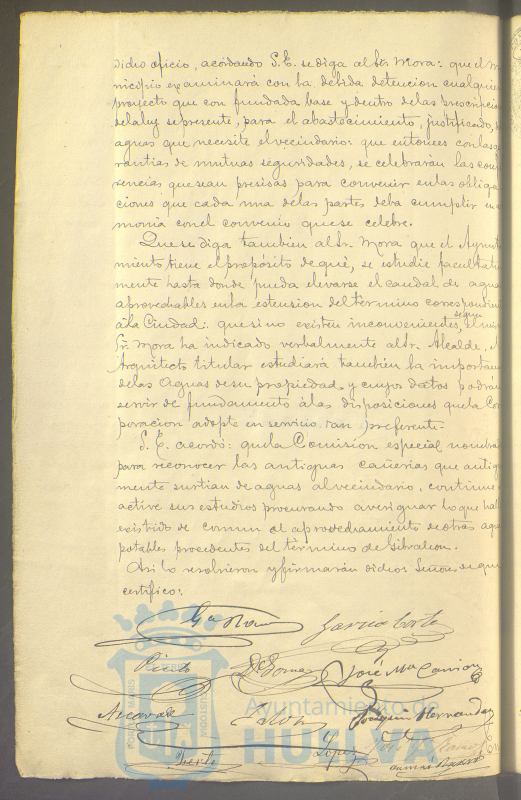 dicho oficio, acordando S.E. se diga al Sr. Mora: que el M
nicipio examinará con la debida detencion cualquier
proyecto que con fundada base y dentro de las prescripcio
de la ley se presente, para el abastecimiento, justificado,
aguas que necesite el vecindario: que entonces con las ga
rantias de mutuas seguridades, se celebrarán las conf
rencias que sean precisas para convenir en las obliga
ciones que cada una de las partes deba cumplir en
monía con el convenio que se celebre.
Que se diga tambien al Sr. Mora que el Ayunt
miento tiene el propósito de que, se estudie facultati
mente hasta donde pueda elevarse el caudal de aguas
aprovechables en la estension del término correspondien
á la Ciudad: que si no existen inconvenientes, segun el mis
Sr. Mora ha indicado verbalmente al Sr. Alcalde,
Arquitecto titular estudiará tambien la importan
de las Aguas de su propiedad, y cuyos datos podran
servir de fundamento á las disposiciones que la Cor
poracion adopte en servicio tan preferente.
S. E. acordó: que la Comision especial nombra
para reconocer las antiguas cañerias que antigu
mente surtian de aguas al vecindario, continue
active sus estudios procurando averiguar lo que hall
existido de comun al aprovechamiento de otras agu
potables procedentes del término de Gibraleon.
Asi lo resolvieron y firmarán dichos Señores de que
certifico:
Garcia Cortes
José Ma
Joaquin Hernandez
Lopez
Ayuntamiento de
HUELVA